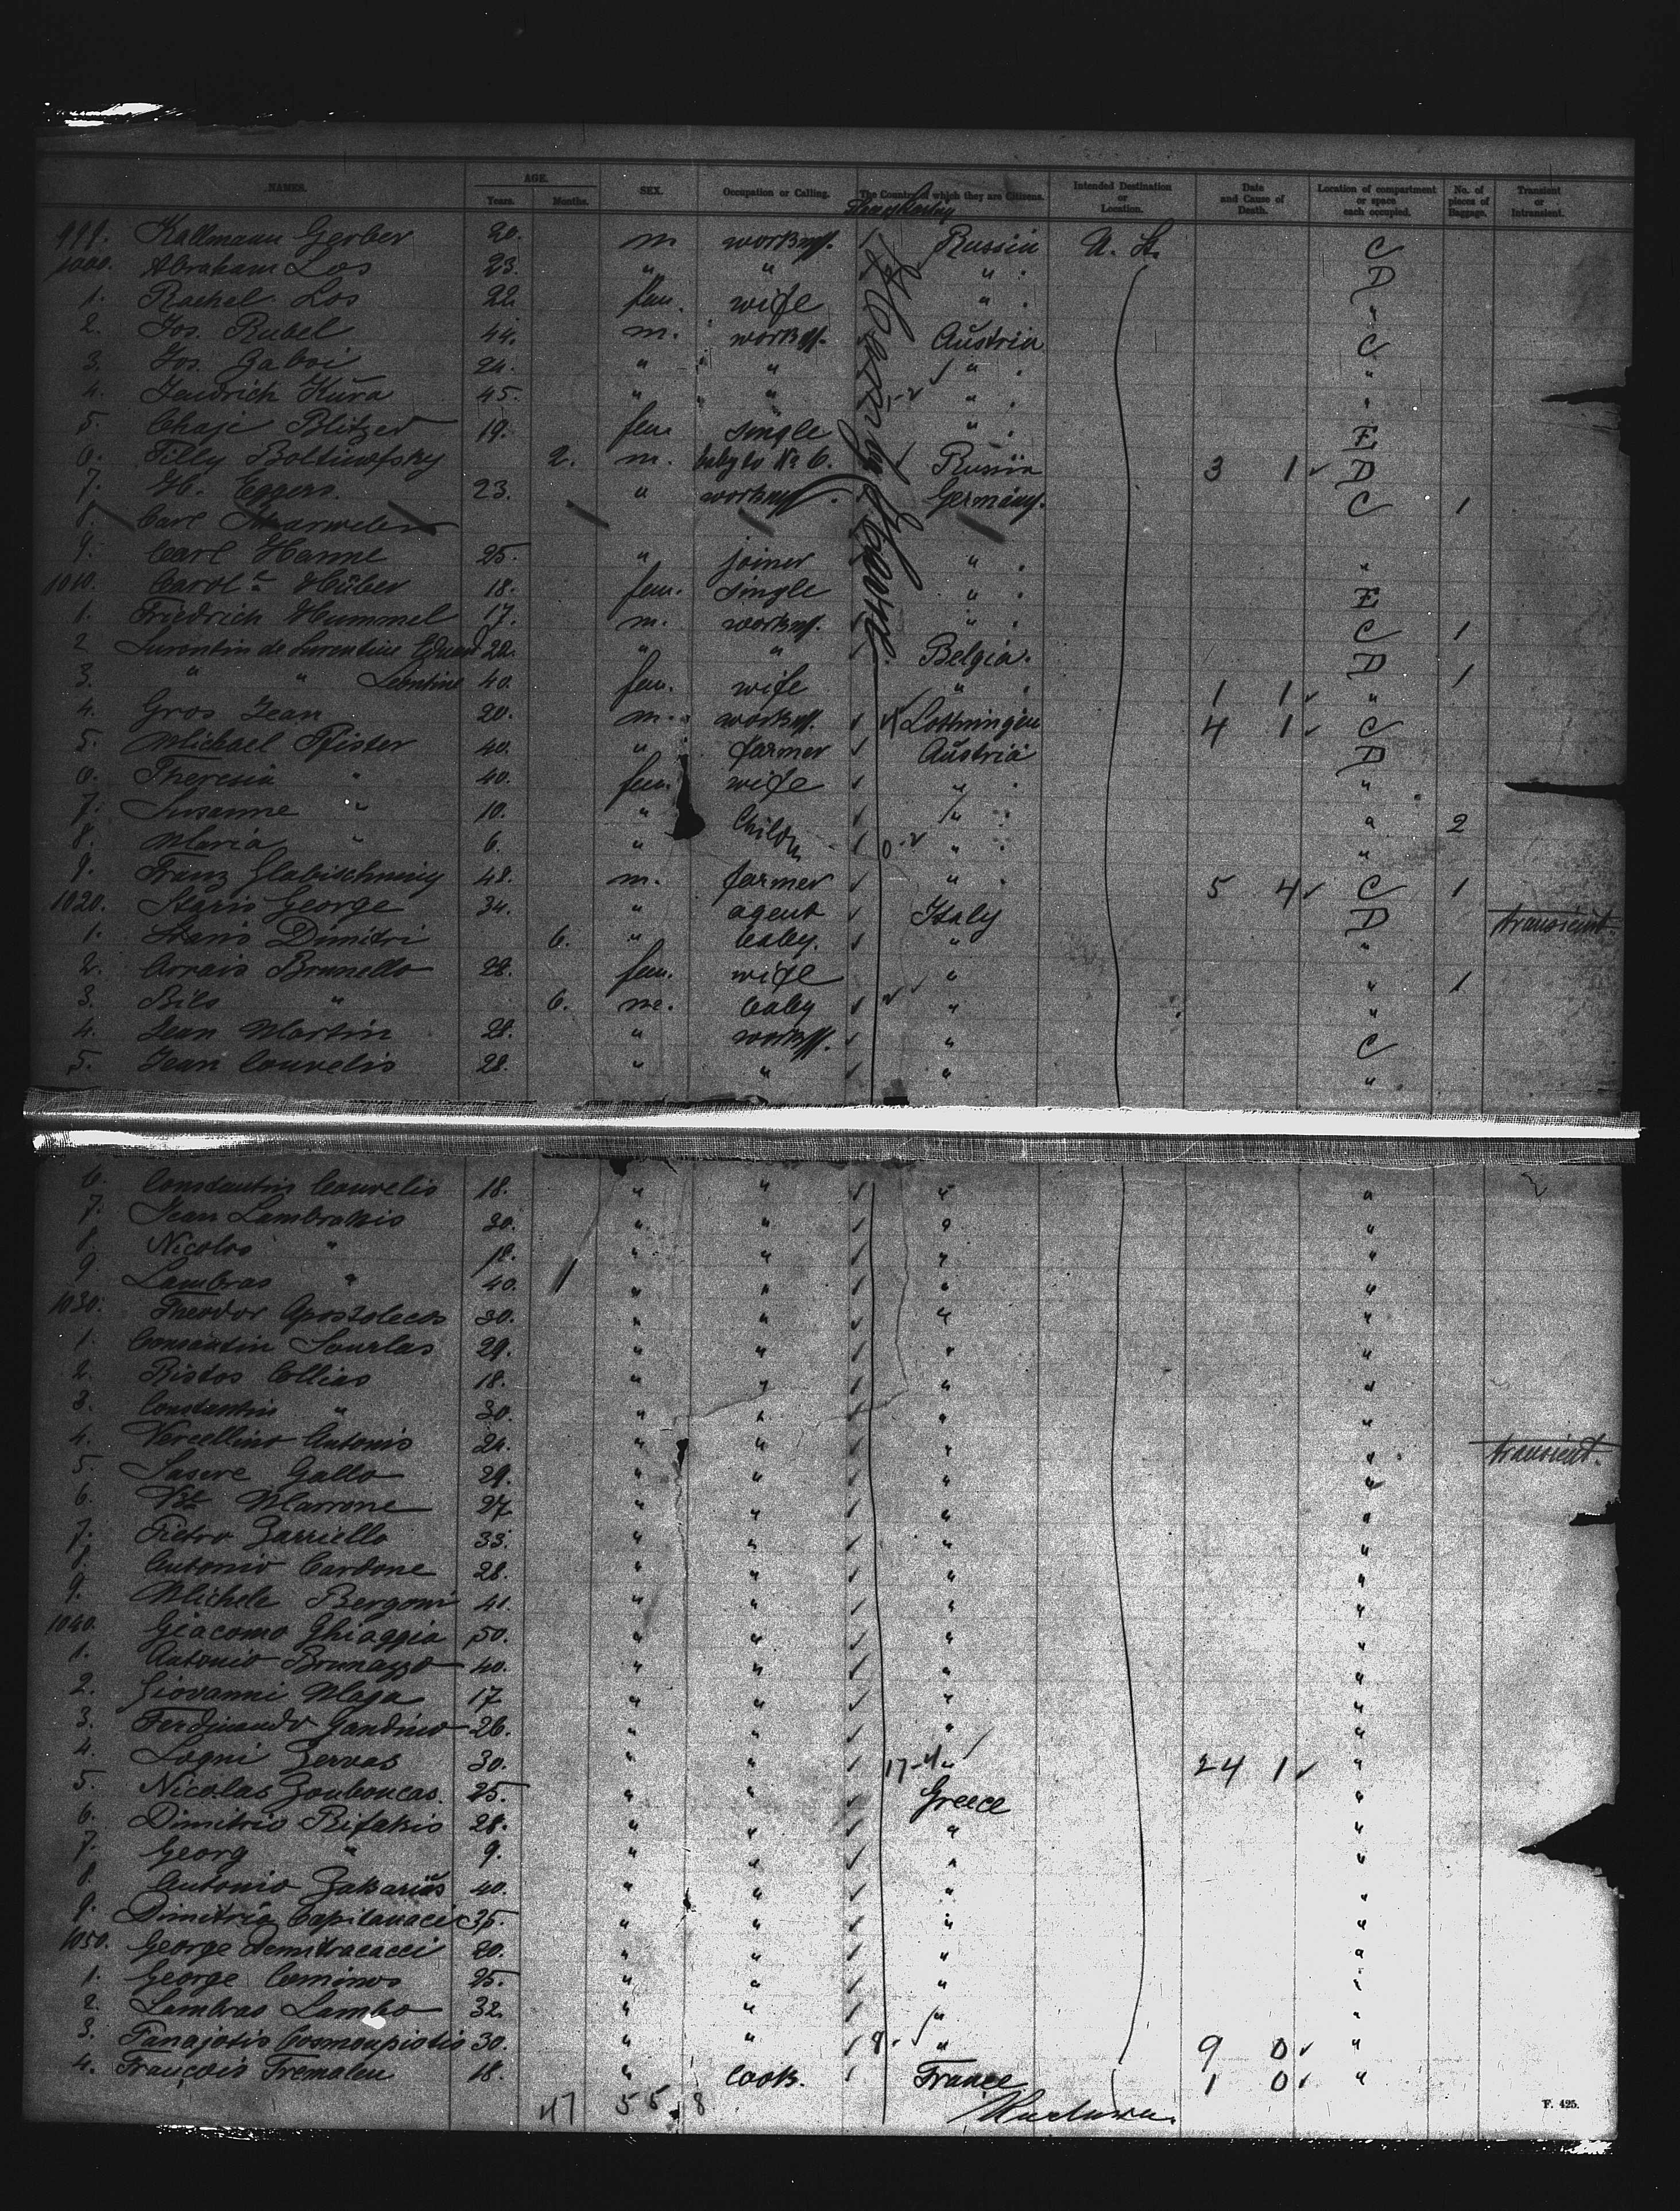 NAMES. AGE. Years. Months. SEX. Occupation or Calling. The Country of which they are Citizens. Intended Destination or Location. Date and Cause of Death. Location of compartment or space each occupied. No. of pieces of Baggage. Transient or Intransient.
999. Kallmann Gerber 20. m workm. Russia U. St. C
1000. Abraham Los 23. " " " D
1. Rachel Los 22. fem. wife " "
2. Jos. Rubel 44. m. workm. Austria C
3. Jos. Gaboi 24. " " " "
4. Jendrich Kura 45. " " " "
5. Chaje Blitzer 19. fem. single " E
6. Tilly 2. m. baby to No 6. Russia 3 1 D
7. H. Eggers 23. " workm. Germany. C 1
8. Carl
9. Carl Hanne 25. " joiner " "
1010. Carol. Hüber 18. fem. single " E
1. Friedrich Hummel 17. m. workm. " C 1
2 22. " " Belgia. D
3. " " Leontine 40. fem. wife " 1 1 " 1
4. Gros Jean 20. m. workm. Lothringen 4 1 C
5. Michael Pfister 40. " farmer Austria D
6. Theresia " 40. fem. wife " "
7. Susanne " 10. " Childr. " " 2
8. Maria " 6. " 0 " "
9. Franz Glabischning 48. m. farmer " 5 4 C 1
1020. Staris George 34. " agent Italy D transient
1. Staris Dimitri 6. " baby. " "
2. Arrais Brunello 28. fem. wife " " 1
3. Bilo " 6. m. baby " "
4. Jean Martin 28. " workm. " C
5. Jean Couvelis 28. " " " "
6. Constantin Couvelis 18. " " " "
7. Jean Lambrakis 30. " " " "
8. Nicolas " 18. " " " "
9 Lambras " 40. " " " "
1030. Theodor Apostolecos 30. " " " "
1. Consantin Sourlas 29. " " " "
2. Ristos Collias 18. " " " "
3. Constantin " 30. " " " "
4. Vercellino Antonio 24. " " " " transient.
5. Gallo 29. " " " "
6. Marrone 27 " " " "
7. Pietro Zarriello 33. " " " "
8. Antonio Cardone 28. " " " "
9. Michele Bergoni 41. " " " "
1040. Giacomo Ghiaggia 50. " " " "
1. Antonio Brunazzo 40. " " " "
2. Giovanni Maga 17 " " " "
3. Ferdinando Gandino 26. " " " "
4. Logni Zervas 30. " " 17 " 24 1 "
5. Nicolas Zouboucas. 25. " " Greece "
6. Dimitrio Rifakis 28. " " " "
7. Georg " 9. " " " "
8. Antonio Zakarias 40. " " " "
9. Dimitrio Capitanaci 35. " " " "
1050. George Demitracacci 20. " " " "
1. George Caminos 25. " " " "
2. Lambras Lambo 32. " " " "
3. Panajotis Cosmoupiotis 30. " " 8. " 9 0 "
4. François Tremaleu 18. " cook. France 1 0 "
47 55 8
F. 425.